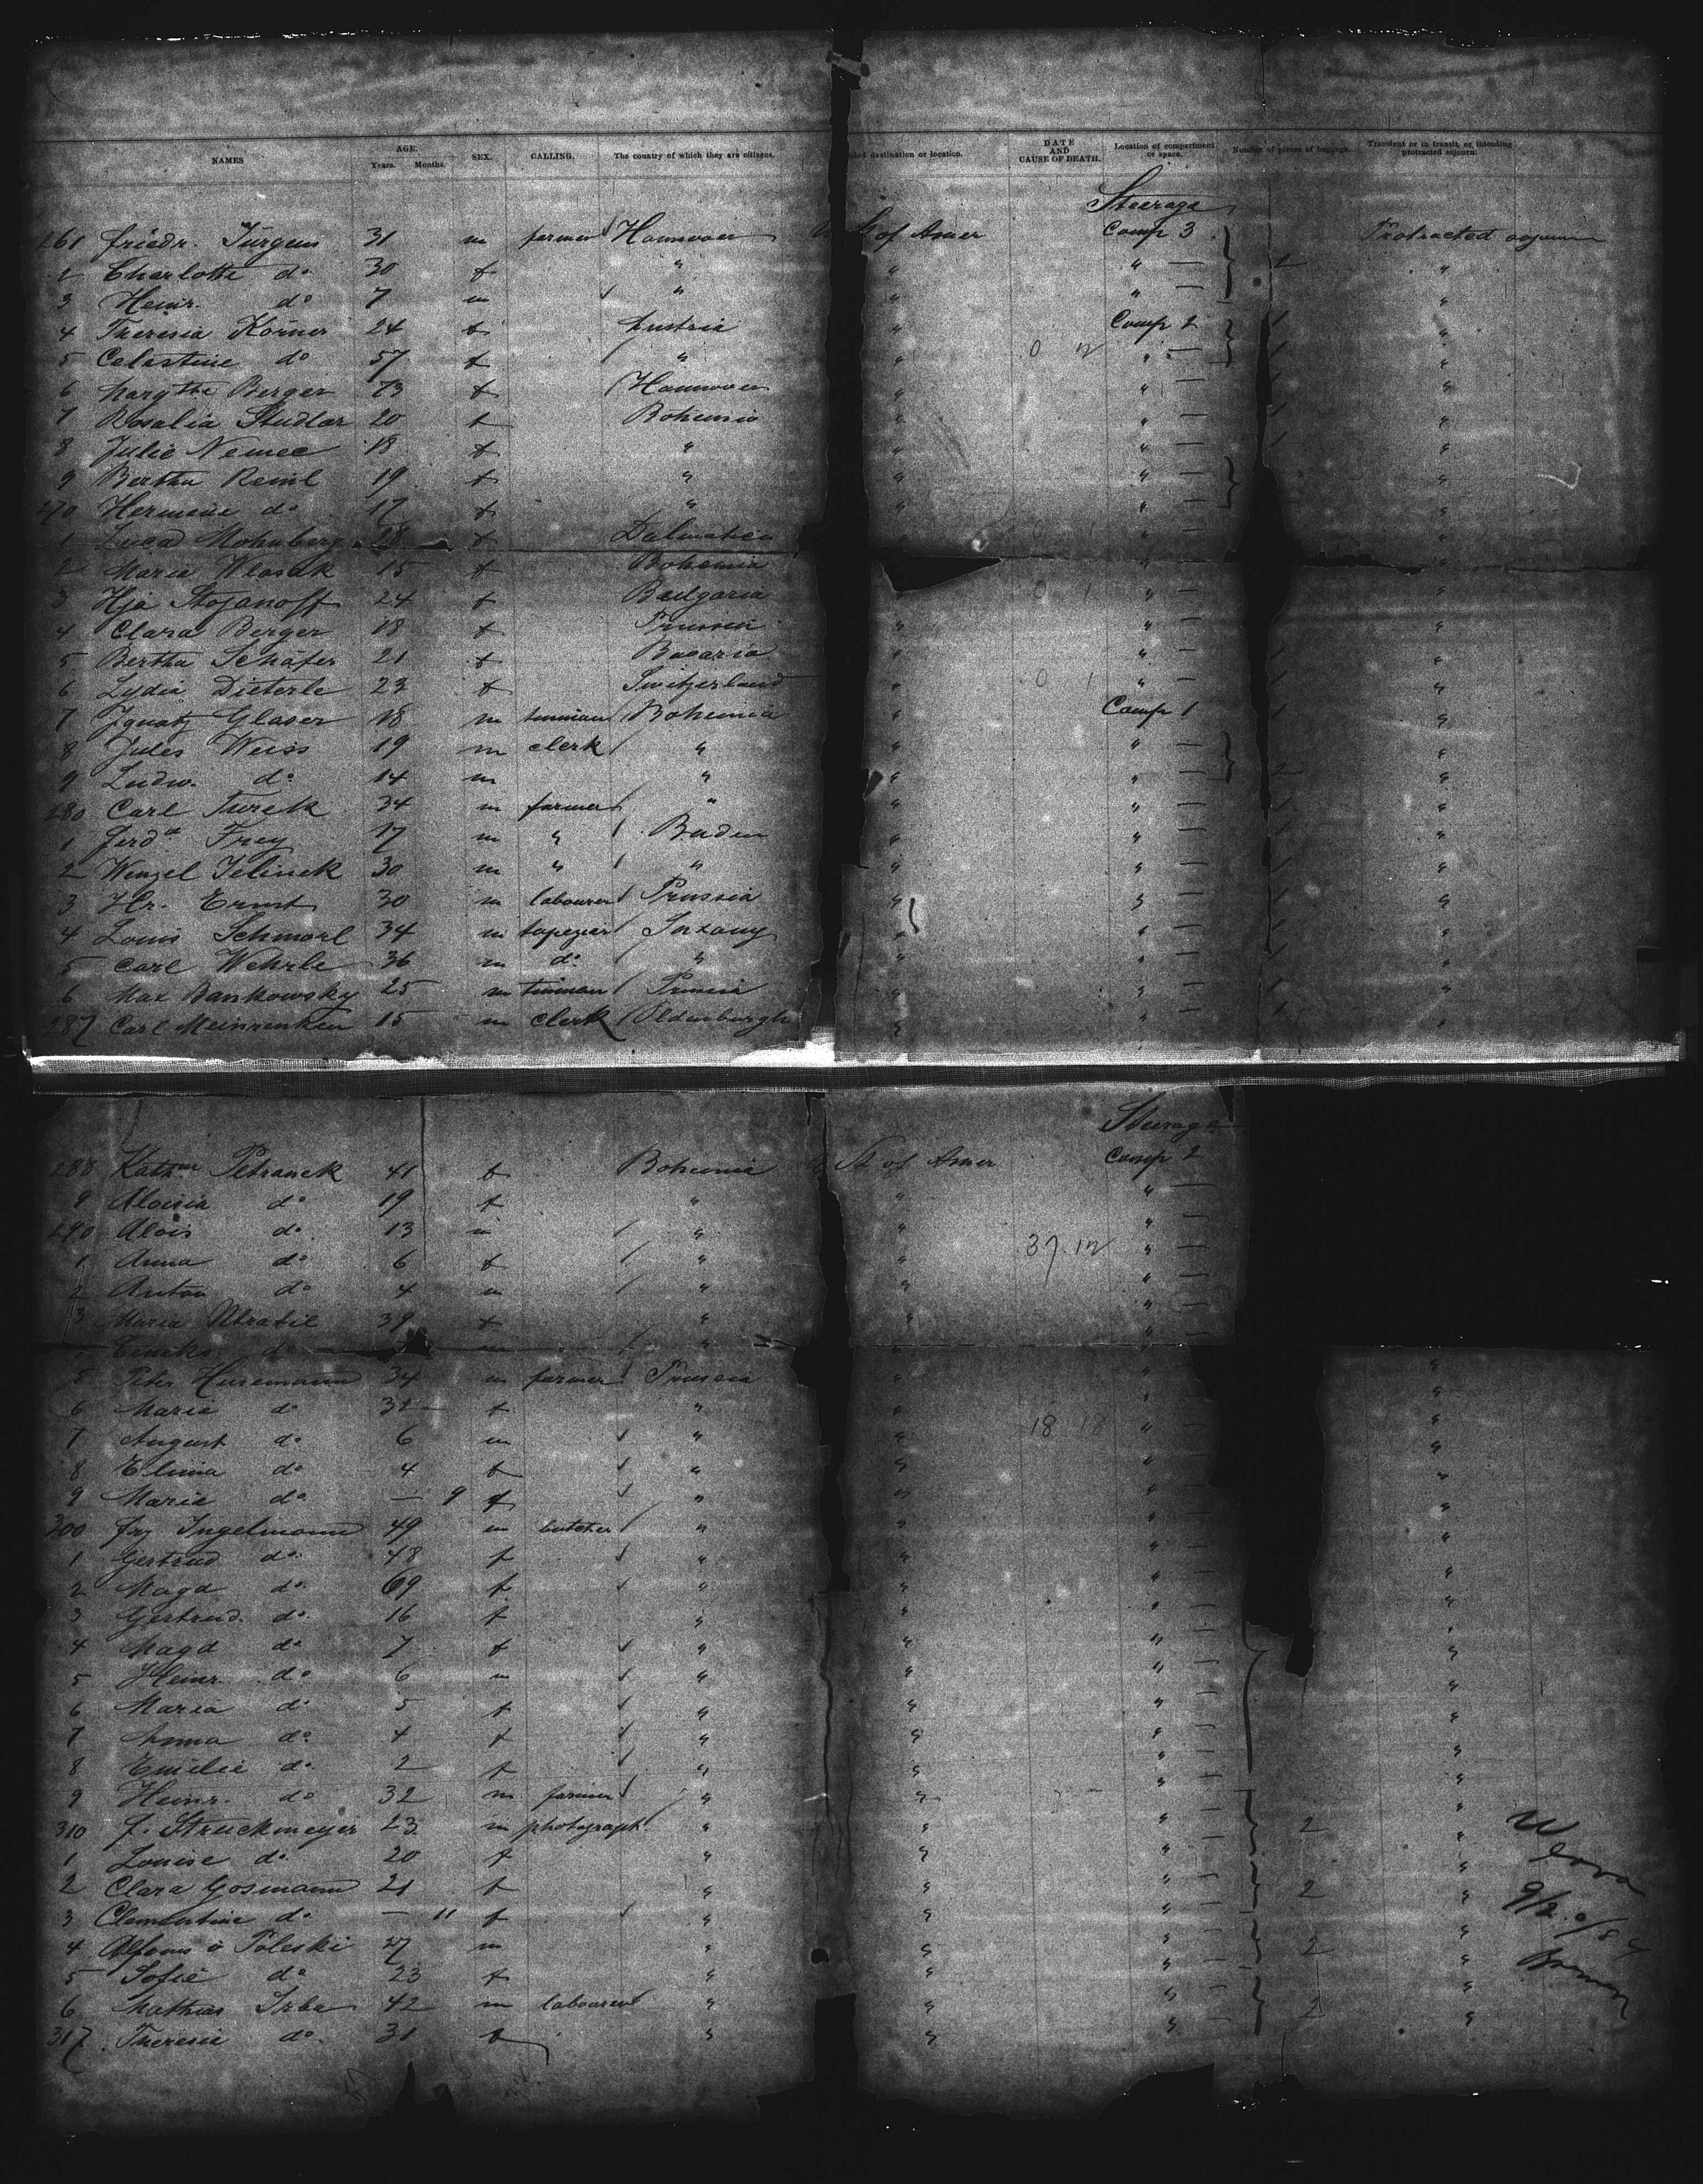 NAMES AGE. Years. Months. SEX. CALLING. The country of which they are citizens. destination or location. DATE AND CAUSE OF DEATH. Location of compartment or space. Number of pieces of baggage. Transient or in transit, or intending protracted sojourn.
Steerage
261 Friedr. Jürgens 31 m farmer Hannover St of Amer Comp 3 Protracted sojourn
2 Charlotte do 30 f " " " — 2 "
3 Heinr. do 7 m " " " — "
4 Theresia Körner 24 f Austria " Comp 2 1 "
5 Celestine do 57 f " " 0 " — 1 "
6 Berger 73 f Hannover " " — 1 "
7 Rosalia Studlar 20 f Bohemia " " — 1 "
8 Julie Nemec 18 f " " " — 1 "
9 Bertha Reinl 19 f " " " — "
270 Hermine do 17 f " " " — "
1 Luca 28 f Dalmatien " — "
2 Maria Wlasak 15 f Bohemia " — "
3 Ilja Stojanoff 24 f Bulgaria 0 1 " — "
4 Clara Berger 18 f Prussia " " — 1 "
5 Bertha Schäfer 21 f Bavaria " " — 1 "
6 Lydia Dieterle 23 f Switzerland " 0 1 " — 1 "
7 Ignatz Glaser 18 m tinman Bohemia " Comp 1 1 "
8 Jules Weiss 19 m clerk " " " — "
9 Ludw. do 14 m " " " — 2 "
280 Carl Turek 34 m farmer " " " — 1 "
1 Ferdd Frey 17 m " Baden " " — 1 "
2 Wenzel Jelinek 30 m " " " " — 1 "
3 Hr. Ernst 30 m labourer Prussia " " — 1 "
4 Louis Schmorl 34 m tapezier Saxony " " — 1 "
5 Carl Wehrle 36 m do " " " — 1 "
6 Max Bankowsky 25 m tinman Prussia " " — 1 "
287 Carl Meinrenken 15 m clerk Oldenburgh " 1 "
Steerage
288 Petranek 41 f Bohemia St of Amer Comp 2
9 Aloisia do 19 f " " " —
290 Alois do 13 m " " " —
1 Anna do 6 f " " 37 12 " —
2 Anton do 4 m " " " —
3 Maria 39 f " " " —
do m " " —
5 Peter 34 m farmer Prussia " " — "
6 Marie do 32 f " " " — "
7 August do 6 m " " 18 18 " — "
8 do 4 f " " " — "
9 Marie do — 9 f " " " — "
300 Frz Ingelmann 49 m butcher " " " — "
1 Gertrud do 48 f " " " — "
2 Magd do 69 f " " " — "
3 Gertrud do 16 f " " " — "
4 Magd do 7 f " " " — "
5 Heinr. do 6 m " " " — "
6 Maria do 5 f " " " — "
7 Anna do 4 f " " " — "
8 Emilie do 2 f " " " — "
9 Heinr. do 32 m farmer " " " — "
310 F. Struckmeyer 23 m photograph. " " " — 2 "
1 Louise do 20 f " " " — "
2 Clara Gosmann 21 f " " " — 2 "
3 Clementine do — 11 f " " " — "
4 Poleski 27 m " " " — 2 "
5 Sofie do 23 f " " " — "
6 Mathias 42 m labourer " " " — 2 "
317 Theresia do 31 f " " " — "
Werra
Bremen